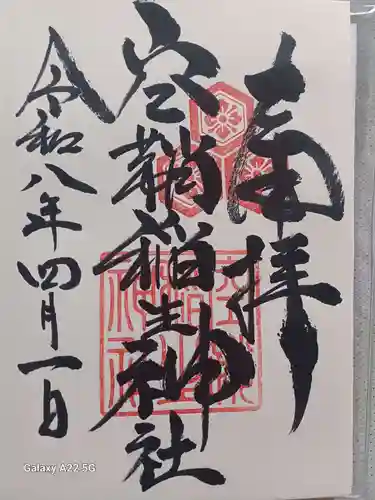 奉拝
空鞘稲生神社
令和八年四月一日
Galaxy A22 5G